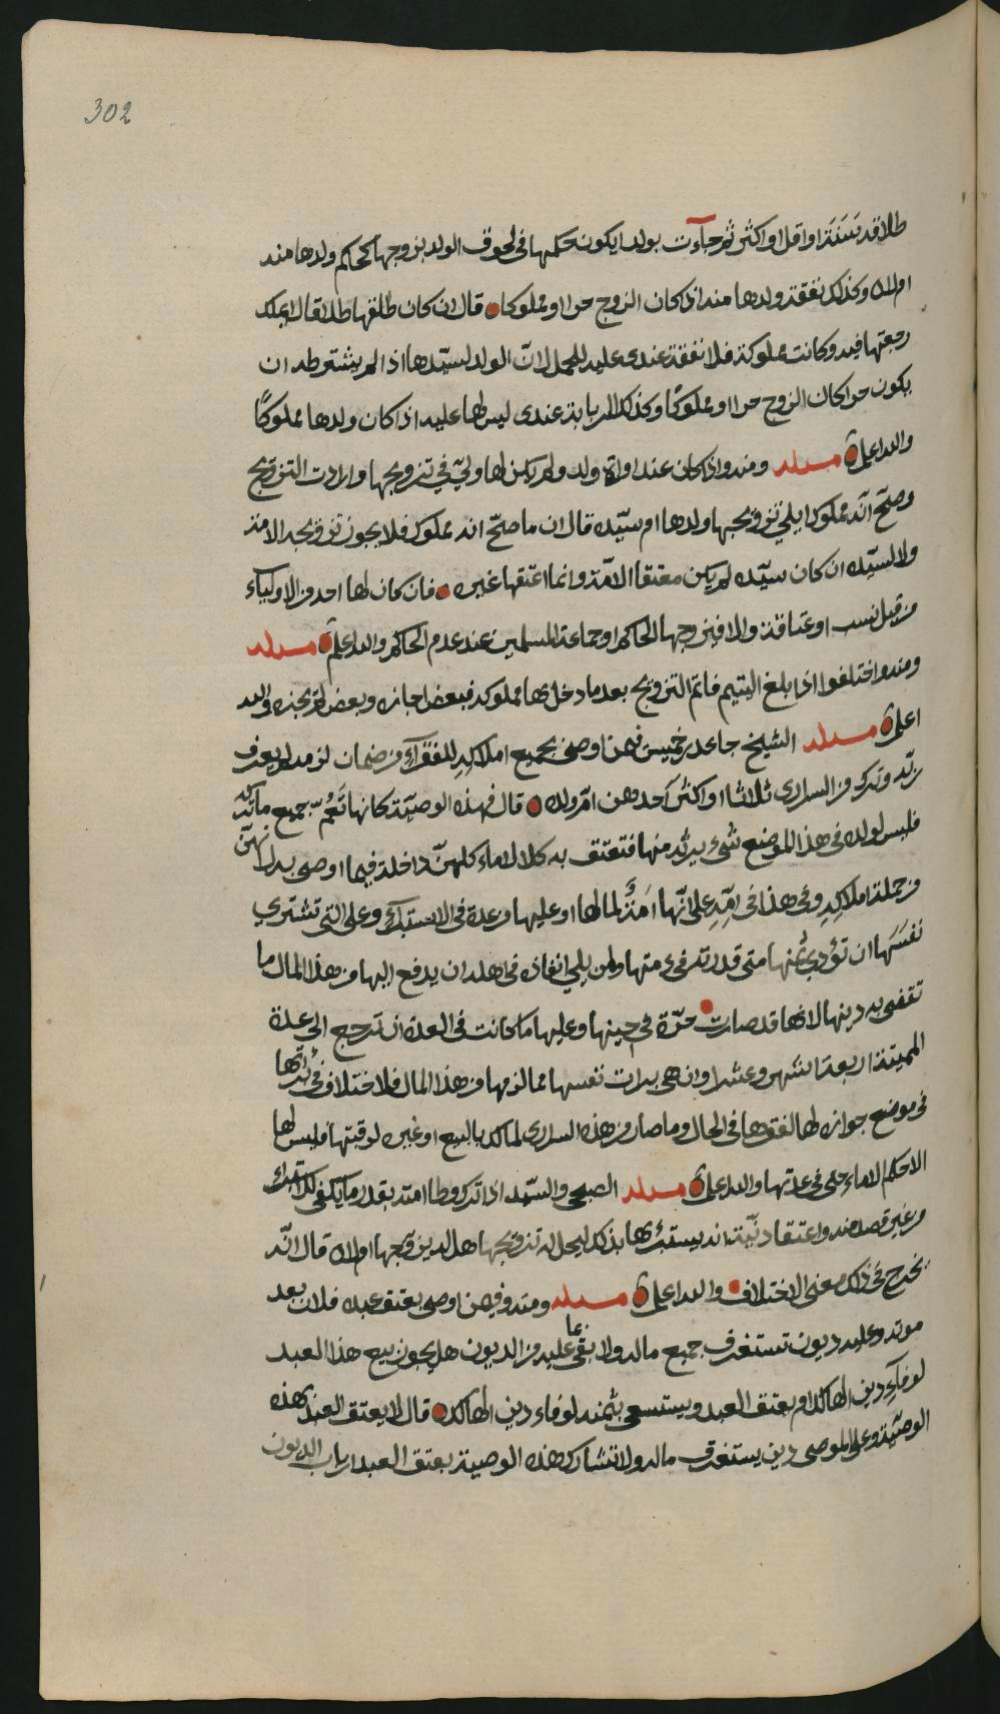 302
طلاقه بسنة او اقل او اكثر ثم جآءت بولد ايكون حكمها في لحوق الولد بزوجها كحاكم ولدها منه
ام لا وكذلك نفقة ولدها منه اذا كان الزوج حرا او مملوكا قال ان كان طلقها طلاقا يملك
رجعتها فيه وكانت مملوكة فلا نفقة عندى عليه للحمل لانّ الولد لسيّدها اذا لم يشترطه ان
يكون حرا كان الزوج حرا او مملوكًا وكذلك الربابة عندى ليس لها عليه اذا كان ولدها مملوكًا
والله اعلم مسئلة ومنه واذا كان عند امرأة ولد ولم يكن لها وليّ في تزويجها وارادت التزويج
وصحّ انّه مملوك ايلي تزويجها ولدها ام سيّده قال ان ما صحّ انه مملوك فلا يجوز تزويجه لامه
ولا لسيّده ان كان سيّده لم يكن معتقا الامة وانما اعتقها غيره فان كان لها احد من الاولياء
من قبل نسب او عتاقة والا فيزوجها الحاكم او جماعة المسلمين عند عدم الحاكم والله اعلم مسئلة
ومنه واختلفوا اذا بلغ اليتيم فاتم التزويج بعد ما دخل بها مملوكه فبعض اجازه وبعض لم يجزه والله
اعلم مسئلة الشيخ جاعد بن خميس فيمن اوصى بجميع املاكه للفقرآء من ضمان لزمه لم يعرف
ربّه وترك من السرارى ثلاثا او اكثر احدهن امّ ولد قال فهذه الوصيّة كانها تعُمّ جميع ما تركه
فليس لولده في هذا الموضع شىء يرثه منها فتعتق به كلا لاماء كلهنّ داخلة فيما اوصى به لانهنّ
من جملة املاكه وفى هذا فى امّه على انّها امَةٌ لما لها او عليها من عدة فى الاستبرآء وعلى التي تشترى
نفسَهَا ان تؤدي ثمنها متى قدرته فى ذمتها ولمن يلي انفاذه فى اهله ان يدفع اليها من هذا المال ما
تقضى به دينها لانها قد صارت حرّة في حينها وعليها ما كانت فى العدة ان ترجع الى عدة
المميتة اربعة اشهر وعشرا وان هى بدات نفسها مما لزمها من هذا المال فلا اختلاف فى برآتها
فى موضع جوازه لها لفقرها فى الحال وما صار من هذه السرارى لمالك بالبيع او غيره لرقبتها فليس لها
الا حكم الاماء حتى فى عدتها والله اعلم مسئلة الصبحي والسيّد اذا ترك وطا امته بقدر ما يكفى لاستبراء
من غير قصد منه واعتقاد نيّة انه يستبرئها بذلك ليحل له تزويجها هل له ان يزوجها ام لا قال انّه
يخرج فى ذلك معنى الاختلاف والله اعلم مسئلة ومنه وفيمن اوصى بعتق عبده فلان بعد
موته وعليه ديون تستغرق جميع ماله ولا بقى عما عليه من الديون هل يجوز بيع هذا العبد
لوفآء دين الهالك ام يعتق العبد ويستسعى بثمنه لوفاء دين الهالك قال لا يعتق العبد بهذه
الوصيّة وعلى الموصى دين يستغرق ماله ولا تشارك هذه الوصية بعتق العبد ارباب الديون